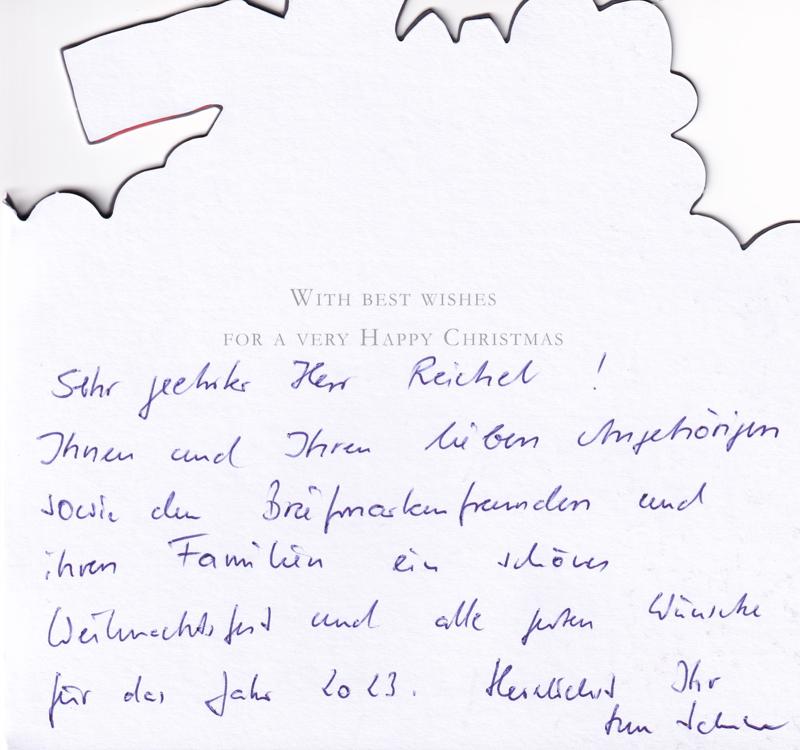 WITH BEST WISHES
FOR A VERY HAPPY CHRISTMAS
Sehr geehrter Herr Reichel !
Ihnen und Ihren lieben Angehörigen
sowie den Briefmarkenfreunden und
ihren Familien ein schönes
Weihnachtsfest und alle guten Wünsche
für das Jahr 2023. Herzlichst Ihr